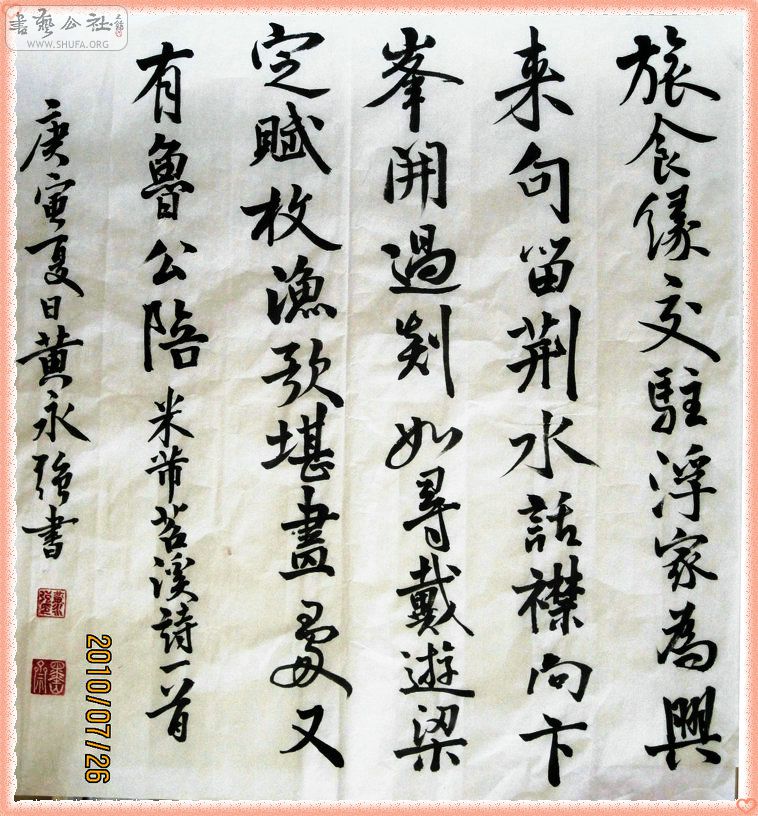 書藝公社
WWW.SHUFA.ORG
旅食緣交駐浮家為興
来句留荆水話襟向卞
峯開過剡如尋戴遊梁
定賦枚漁歌堪畫處又
有魯公陪 米芾苕溪詩一首
庚寅夏日黄永强書
2010/07/26